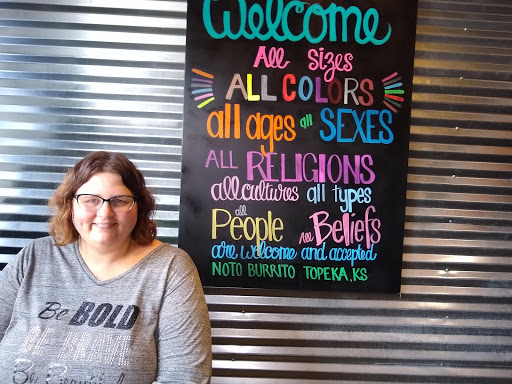 Welcome
All sizes
ALL COLORS
all ages all SEXES
ALL RELIGIONS
all cultures all types
all People all Beliefs
are welcome and accepted
NOTO BURRITO TOPEKA, KS
Be BOLD
BE BRAVE
Be Beautiful